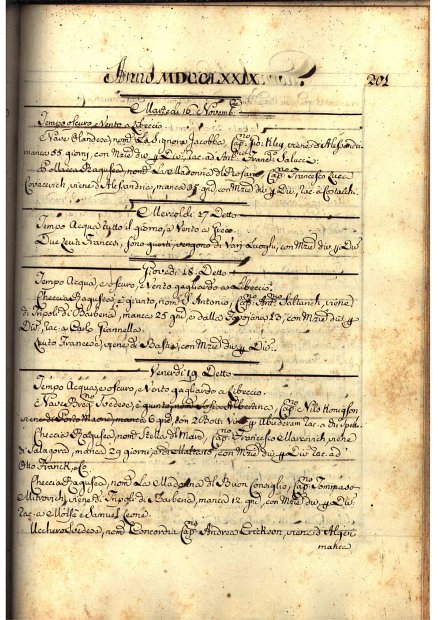 Anno MDCCLXXIX
201
Martedì 16 Novemb.
Tempo oscuro, e Vento a Libeccio
Nave Olandese, nom. La Signora Jacoba, Cap.no Pileij, viene di Alessandria
manca 55 giorni, con Mzie div. p Div., rac. ad Ant. Franc. Salucci
Pollacca Ragusea, nom. La Madonna del Rosaro, Cap.no Francesco Luca
Covacevich, viene di Alessandria, manca gni, con Mzie div. p Div., rac. a
Mercoldì 17 Detto
Tempo Acqua tutto il giorno, e Vento a Greco
Due Leuti Francesi, sono giunti, vengono da Varj Luoghi, con Mzie div. p Div.
Giovedì 18. Detto
Tempo Acqua, e oscuro, e Vento gagliardo a Libeccio
Checcia Ragusea, è giunto, nom. S. Antonio, Cap.no Ant. viene
di Tripoli di Barberia, manca 25 gni, e dalla 13, con Mzie div. p
Div., rac. a Carlo Giannella
Leuto Francese, viene di Bastia, con Mzie div. p Div.
Venerdì 19 Detto
Tempo Acqua, e oscuro, e Vento gagliardo a Libeccio
È Nave Svedese, è giunto, nom. Sofia Albertina, Cap.no Nils Konigson
viene di Porto Maone, manca 6 gni, con 2 Botti Vino p rac. a
Checcia Ragusea, nom. Stella di Mare, Cap.no Francesco viene
di Salagora, manca 29 giorni, e di con Mzie div. p Div. rac. ad
Otto Franck, e C.
Checcia Ragusea, nom. La Madonna del Buon Consiglio, Cap.no Tommaso
Mitrovich, viene di Tripoli di Barberia, manca 12 gni, con Mzie div. p Div.
rac. a e Samuel Leone
Ucchero Svedese, nom. Concordia Cap.no Andrea Erickson, viene d'Algeri
manca